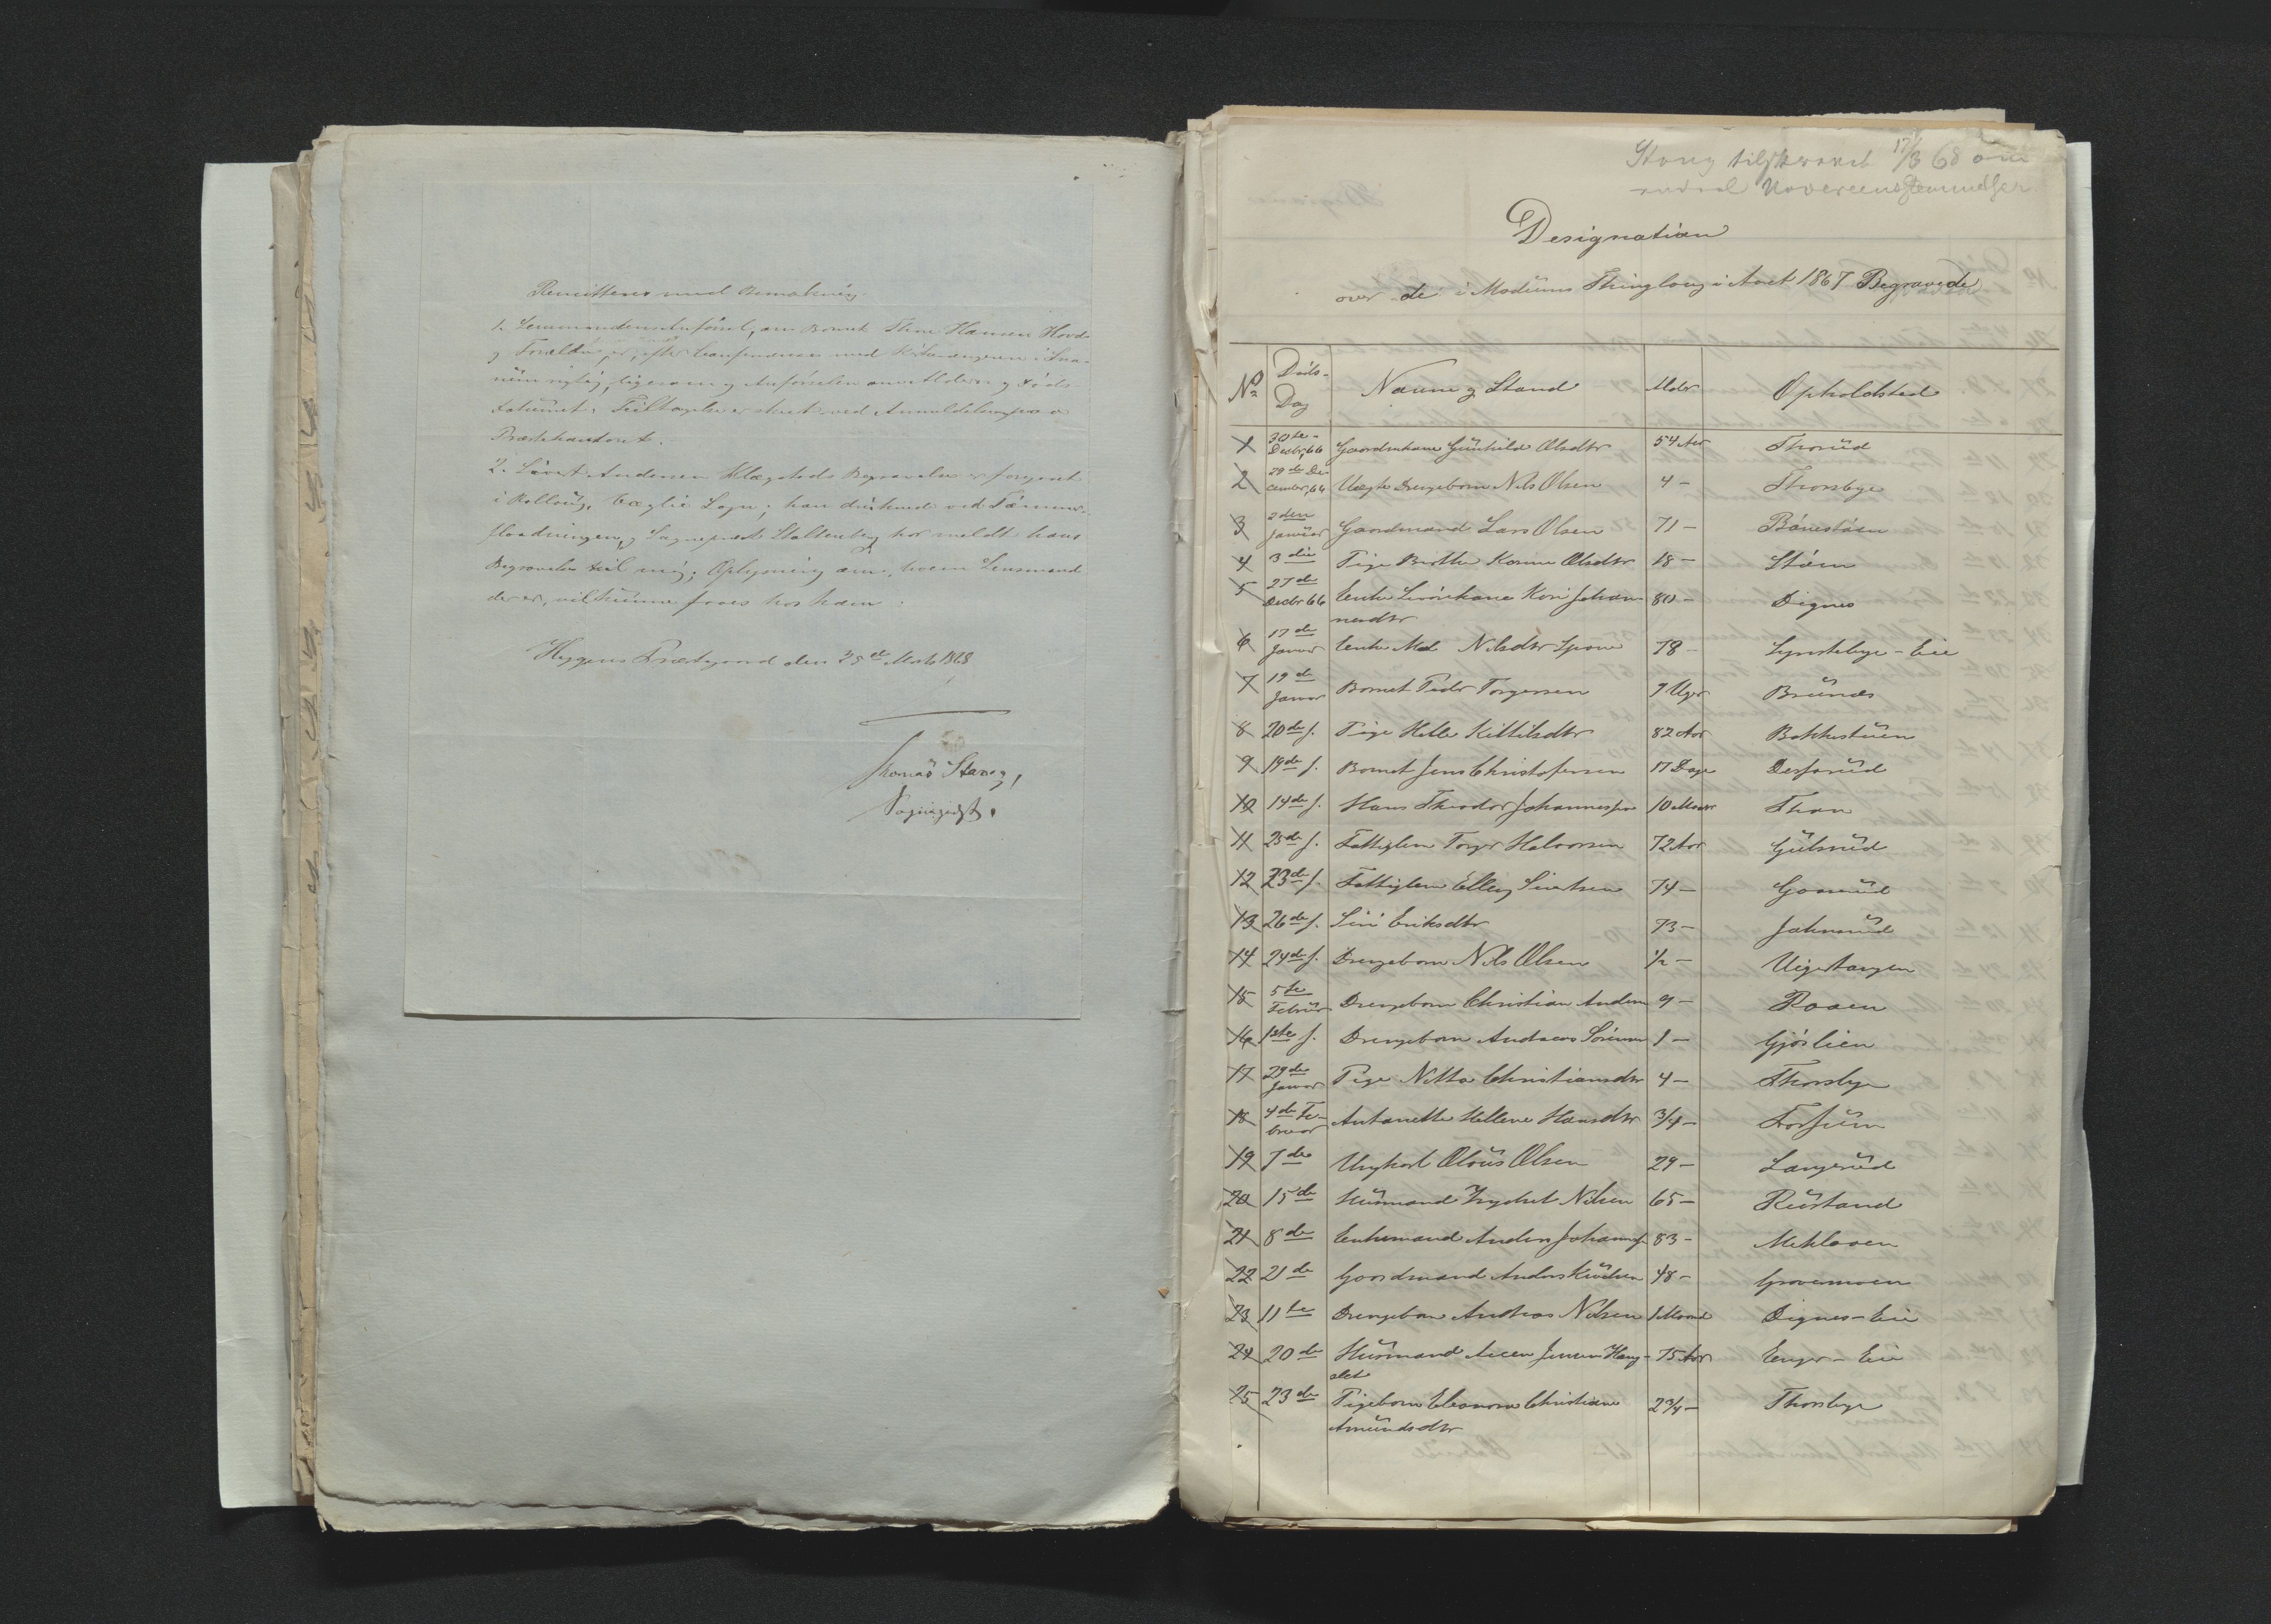 Remitteres med Bemærkning
1. Lensmandens Anførsel, om Barnet Hansen Hovde
og Forældre, er, efter med Kirkesangeren i Sna-
rum rigtig, ligesom og Anførselen om Alder og Føds
ved Anmeldelsen paa
Præstekontoret.
2. Syvert Andersen Begravelse er foregaaet
i Rollaug, Eggedal Sogn; han druknede ved Tømmer-
flødningen, og Sogneprest Stoltenberg har meldt hans
Begravelse til mig; Oplysning om, hvem Lensmand
der er, vil kunne faaes hos ham.
Heggens Præstegaard den 25de Marts 1868
Thomas Stang,
Sogneprest.
Stang tilskrevet 17/3 68 om
Uoverensstemmelser
Designation
over de i Modums Thinglaug i Aaret 1867 Begravede
No Døds-Dag Navn og Stand Alder Opholdsted
1 30te Decbr, 66 Gaardmkone Gunhild Olsdtr 54 Aar Thorud
2 29de December, 66 Uægte Drengebarn Nils Olsen 4 – Thorsbye
3 2den Januar Gaardmand Lars Olsen 71 – Bønestøen
4 3die Pige Birthe Karine Olsdtr 18 – Støen
5 27de Decbr 66 Enke Kari Johan-
nesdtr 80 – Dignes
6 17de Januar Enke Nilsdtr Spone 78 – Eie
7 19de Januar Barnet Peder Torgersen 7 Uger Brunæs
8 20de J. Pige Helle Kittilsdtr 82 Aar Bakkestuen
9 19de J. Barnet Jens Christofersen 17 Dage
10 14de J. Hans Theodor Johannesen 10 Maader Thon
11 25de J. Fattiglem Torger Halvorsen 72 Aar Gulsrud
12 23de J. Fattiglem Ellev Sivertsen 74 –
13 26de J. Siri Eriksdtr 73 – Jahnsrud
14 24de J. Drengebarn Nils Olsen 1/2 –
15 5te Februar Drengebarn Christian Andersen 9 – Roaen
16 1ste J. Drengebarn Andreas Sørensen 1 – Gjøslien
17 29de Januar Pige Netta Christiansdtr 4 – Thorsbye
18 4de Februar Antonette Hellene Hansdtr 3/4 –
19 7de Ungkarl Olaus Olsen 29 – Langerud
20 15de Husmand Nilsen 65 – Rustand
21 8de Enkemand Anders Johannesen 83 –
22 21de Gaardmand Anders Knudsen 48 – Grovemoen
23 11te Drengebarn Andreas Nilsen 1 Maaned Dignes-Eie
24 20de Husmand Aren Jensen Haug-
slet 75 Aar Enger-Eie
25 23de Pigebarn Eleonora Christiane
Amundsdtr 2 3/4 – Thorsbye